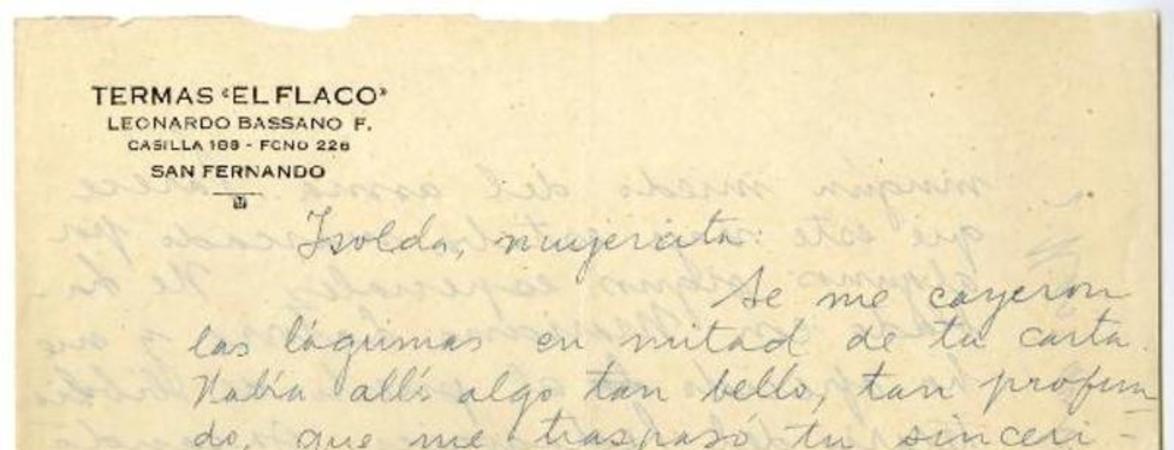 TERMAS «EL FLACO»
LEONARDO BASSANO F.
CASILLA 188 - FONO 226
SAN FERNANDO
Isolda, mujercita:
Se me cayeron
las lágrimas en mitad de tu carta.
Había allí algo tan bello, tan profun-
do, que me traspasó tu sinceri-